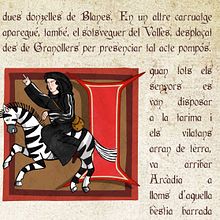 dues donzelles de Blanes. En un altre carruatge
aparegué, també, el sotsveguer del Vallès, desplaçat
des de Granollers per presenciar tal acte pompós.
I
quan tots els
senyors es
van disposar
a la tarima i
els vilatans
arran de terra,
va arribar
Arcàdia a
lloms d'aquella
bèstia barrada